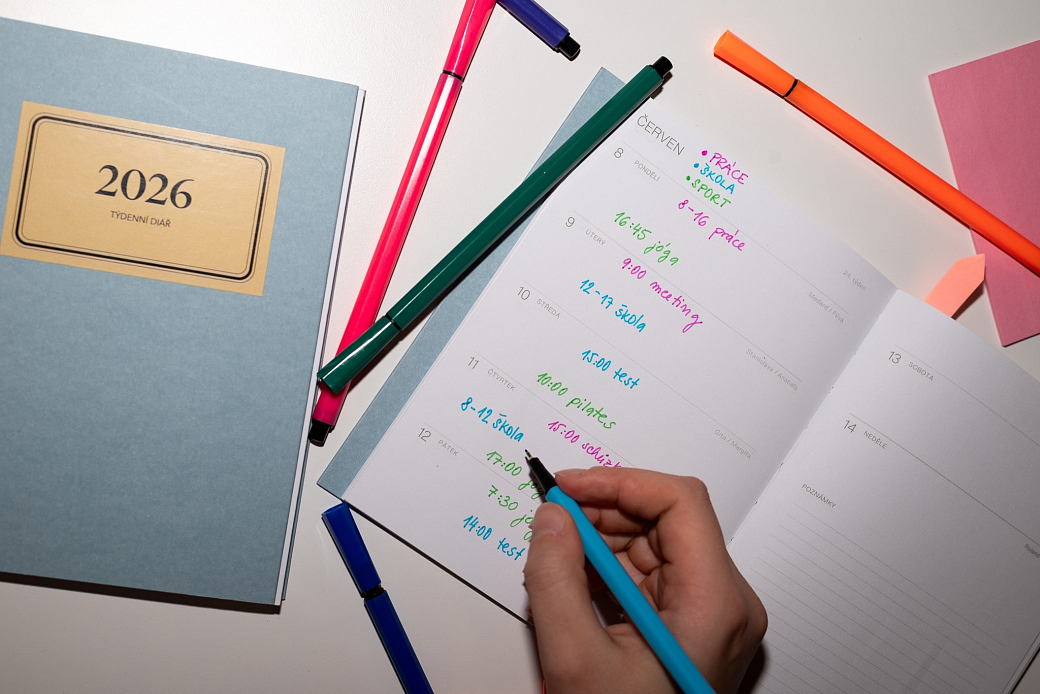 2026
TÝDENNÍ DIÁŘ
ČERVEN
• PRÁCE
• ŠKOLA
• SPORT
24. týden
8 PONDĚLÍ
Medard / Věra
8-16 práce
16:45 jóga
9 ÚTERÝ
Stanislava /
9:00 meeting
12-17 škola
10 STŘEDA
Gita / Margita
15:00 test
11 ČTVRTEK
10:00 pilates
8-12 škola
15:00
17:00
12 PÁTEK
7:30
14:00 test
13 SOBOTA
14 NEDĚLE
POZNÁMKY